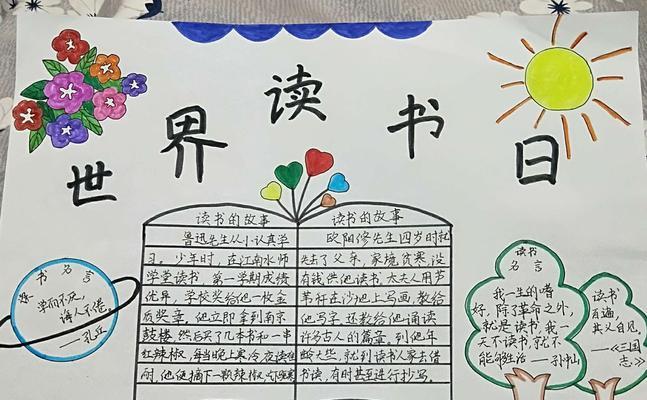 世界读书日
读书的故事
鲁迅先生从小认真学
习。少年时,在江南水师
学堂读书,第一学期成绩
优异,学校奖给他一枚金
质奖章,他立即拿到南京
鼓楼
然后买了几本书和一串
红辣椒,每当晚上寒冷夜读
耐,他便摘下一颗辣椒,
读书的故事
欧阳修先生四岁时就
失去了父亲,家境贫寒,没
有钱供他读书,太夫人用芦
苇秆在沙地上写画,教给
他写字,还教给他诵读
许多古人的篇章,到他年
龄大些,就到读书人家去借
书读,有时甚至进行抄写。
书名言
学而不厌,
诲人不倦。
——孔丘
读书
名言
我一生的嗜
好,除了革命之外,
就是读书,我一
天不读书,就不
能够生活——孙中山
读书
百遍,
其义自见。
——《三国
志》